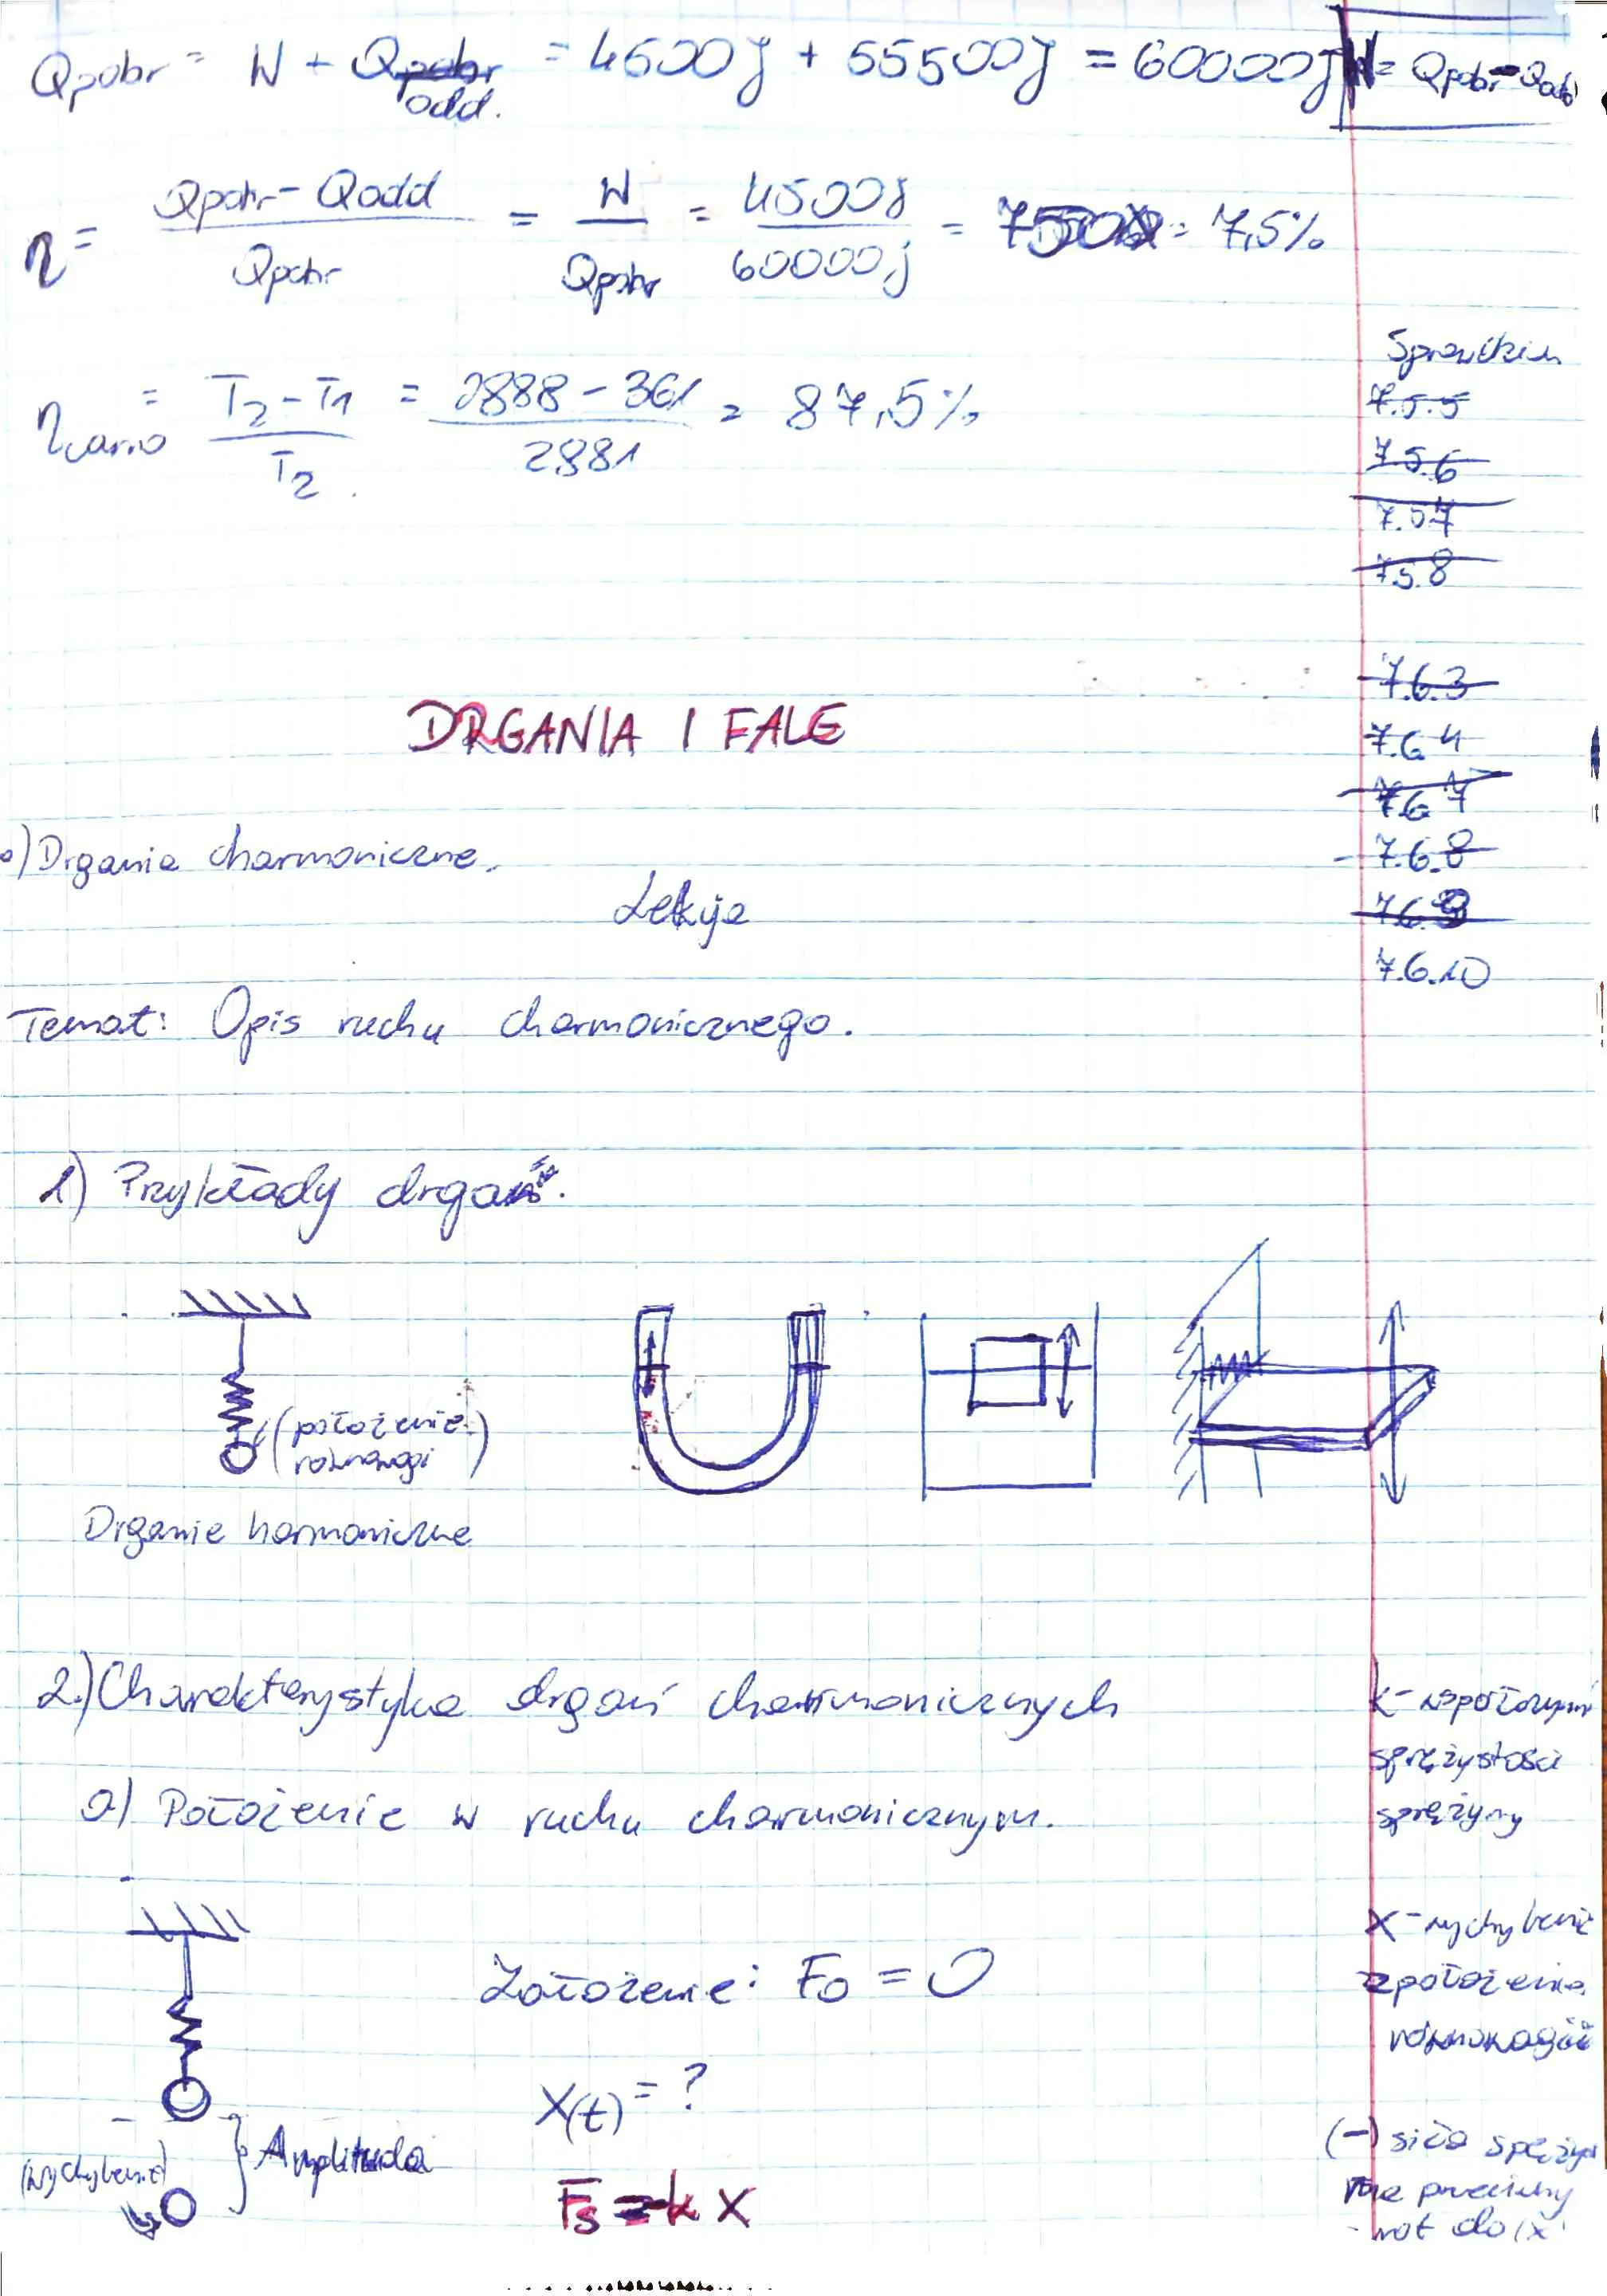 Qpobr = W + Qpobr odd. = 4500J + 55500J = 60000J
W = Qpobr - Qodd
η = Qpobr - Qodd / Qpobr = W / Qpobr = 4500J / 60000J = 7,5%
ηcarno = T2 - T1 / T2 = 2888 - 361 / 2881 = 87,5%
7.5.5
7.5.6
7.5.7
7.5.8
7.6.3
7.6.4
7.6.7
7.6.8
7.6.9
7.6.10
DRGANIA I FALE
Drgania charmoniczne.
Lekcja
Temat: Opis ruchu charmonicznego.
1) Przykłady drgań.
(położenie równowagi)
Drganie harmoniczne
2.) Charakterystyka drgań charmonicznych
a) Położenie w ruchu charmonicznym.
k - współczynni
sprężystości
sprężyny
Założenie: Fo = 0
X(t) = ?
Fs = -k X
x - wychylenie
z położenia
równowagi
(wychylenie)
Amplituda
(-) siła
przeciwny
wot do (x)